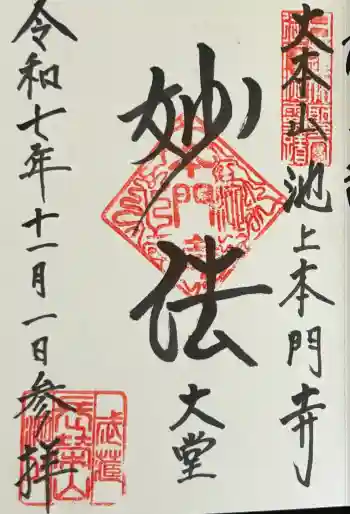 大本山 池上本門寺
妙法
大堂
令和七年十一月一日参拝